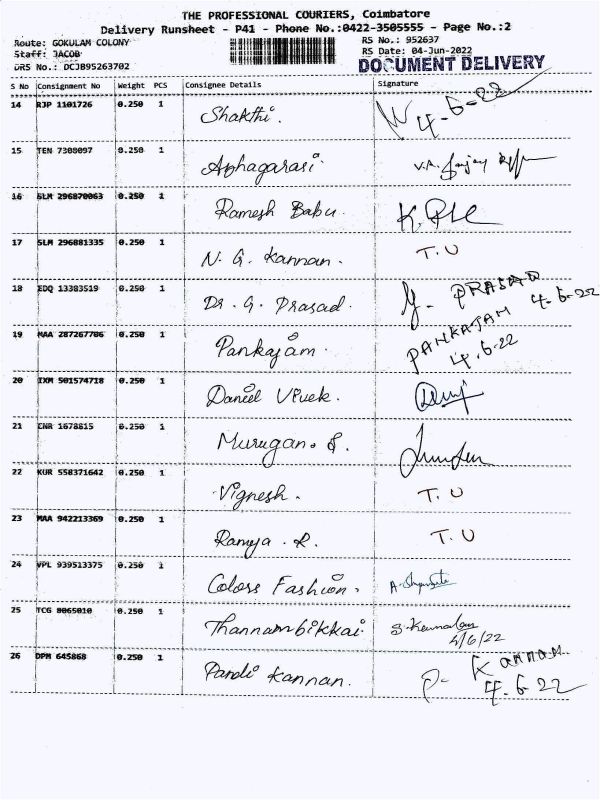 THE PROFESSIONAL COURIERS, Coimbatore
Delivery Runsheet - P41 - Phone No.:0422-3505555 - Page No.:2
Route: GOKULAM COLONY RS No.: 952637
Staff: JACOB RS Date: 04-Jun-2022
DRS No.: DCJB95263702 DOCUMENT DELIVERY
S No Consignment No Weight PCS Consignee Details Signature
14 RJP 1101726 0.250 1 Shakthi. 4-6-22
15 TEN 7308097 0.250 1 V.R. Sanjay
16 SLM 296870063 0.250 1 Ramesh Babu.
17 SLM 296881335 0.250 1 N. G. Kannan. T.U
18 EDQ 13383519 0.250 1 Dr. G. Prasad. G. PRASAD 4-6-22
19 MAA 287267706 0.250 1 Pankajam. PANKAJAM 4.6-22
20 IXM 501574718 0.250 1 Daniel Vivek.
21 CNR 1678815 0.250 1 Murugan. S.
22 KUR 558371642 0.250 1 Vignesh. T.U
23 MAA 942213369 0.250 1 Ramya. R. T.U
24 VPL 939513375 0.250 1 Colors Fashion.
25 TCG 8065010 0.250 1 Thannambikkai. 4/6/22
26 DPM 645868 0.250 1 Pandi Kannan. P. Kannan. 4.6-22